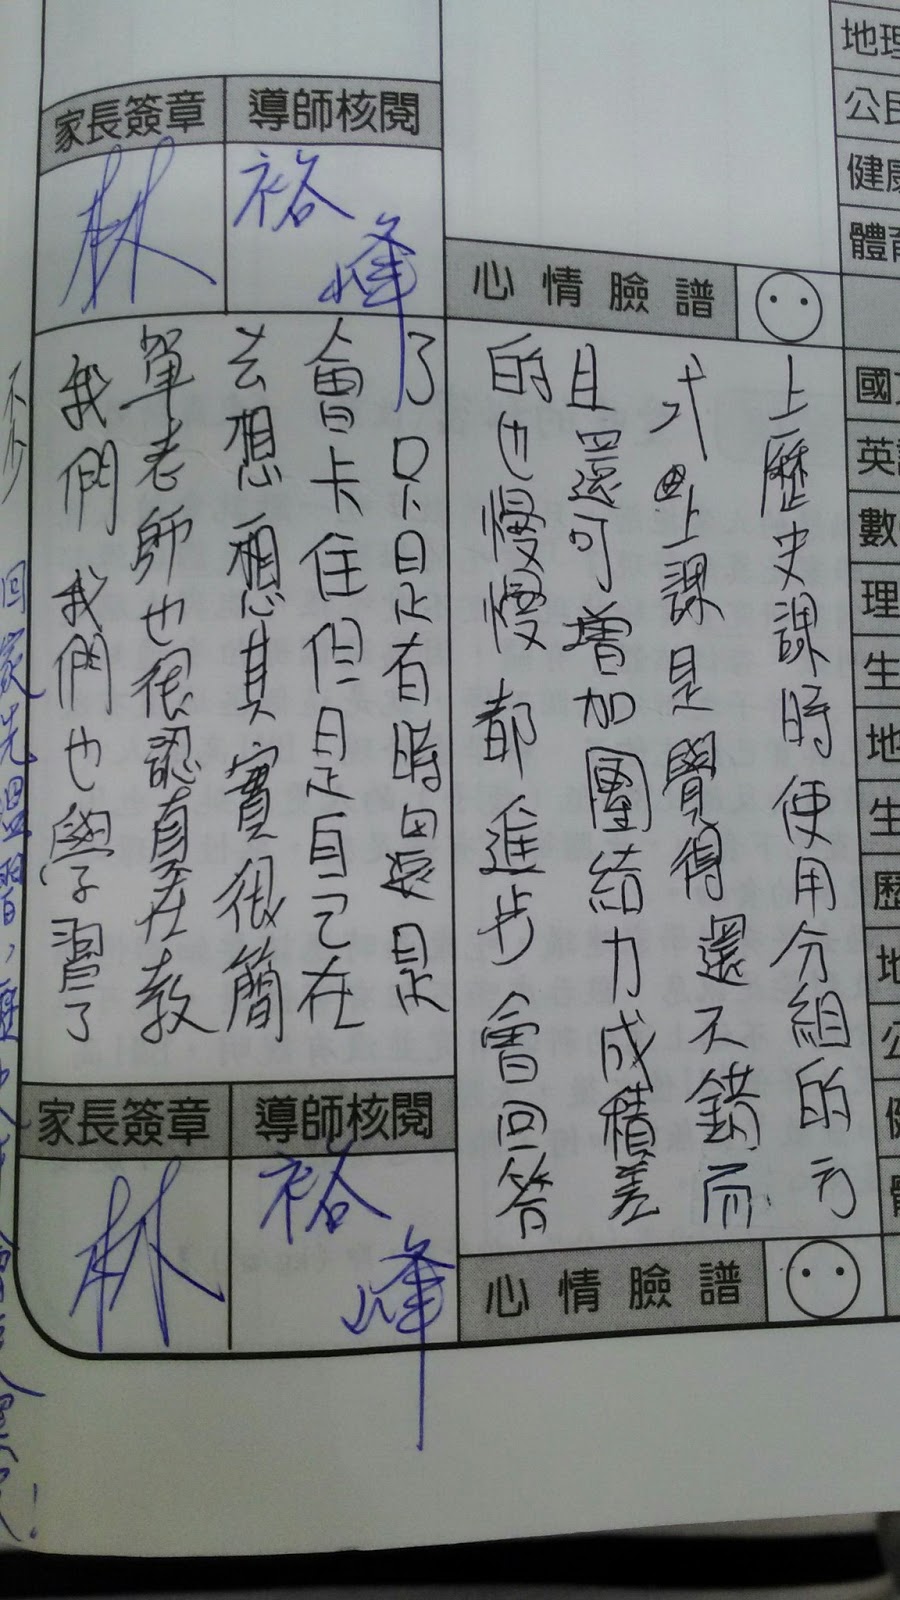 家長簽章
導師核閱
林
裕峰
心情臉譜
上歷史課時使用分組的方
式上課是覺得還不錯而
且還可增加團結力成積差
的也慢慢都進步會回答
了只是有時還是
會卡住但是自己在
去想想其實很簡
單老師也很認真在教
我們我們也學習了
不少
家長簽章
導師核閱
林
裕峰
心情臉譜
地理
公民
健康
體育
國文
英語
數
理
生
地
生
歷
地
公
健
體